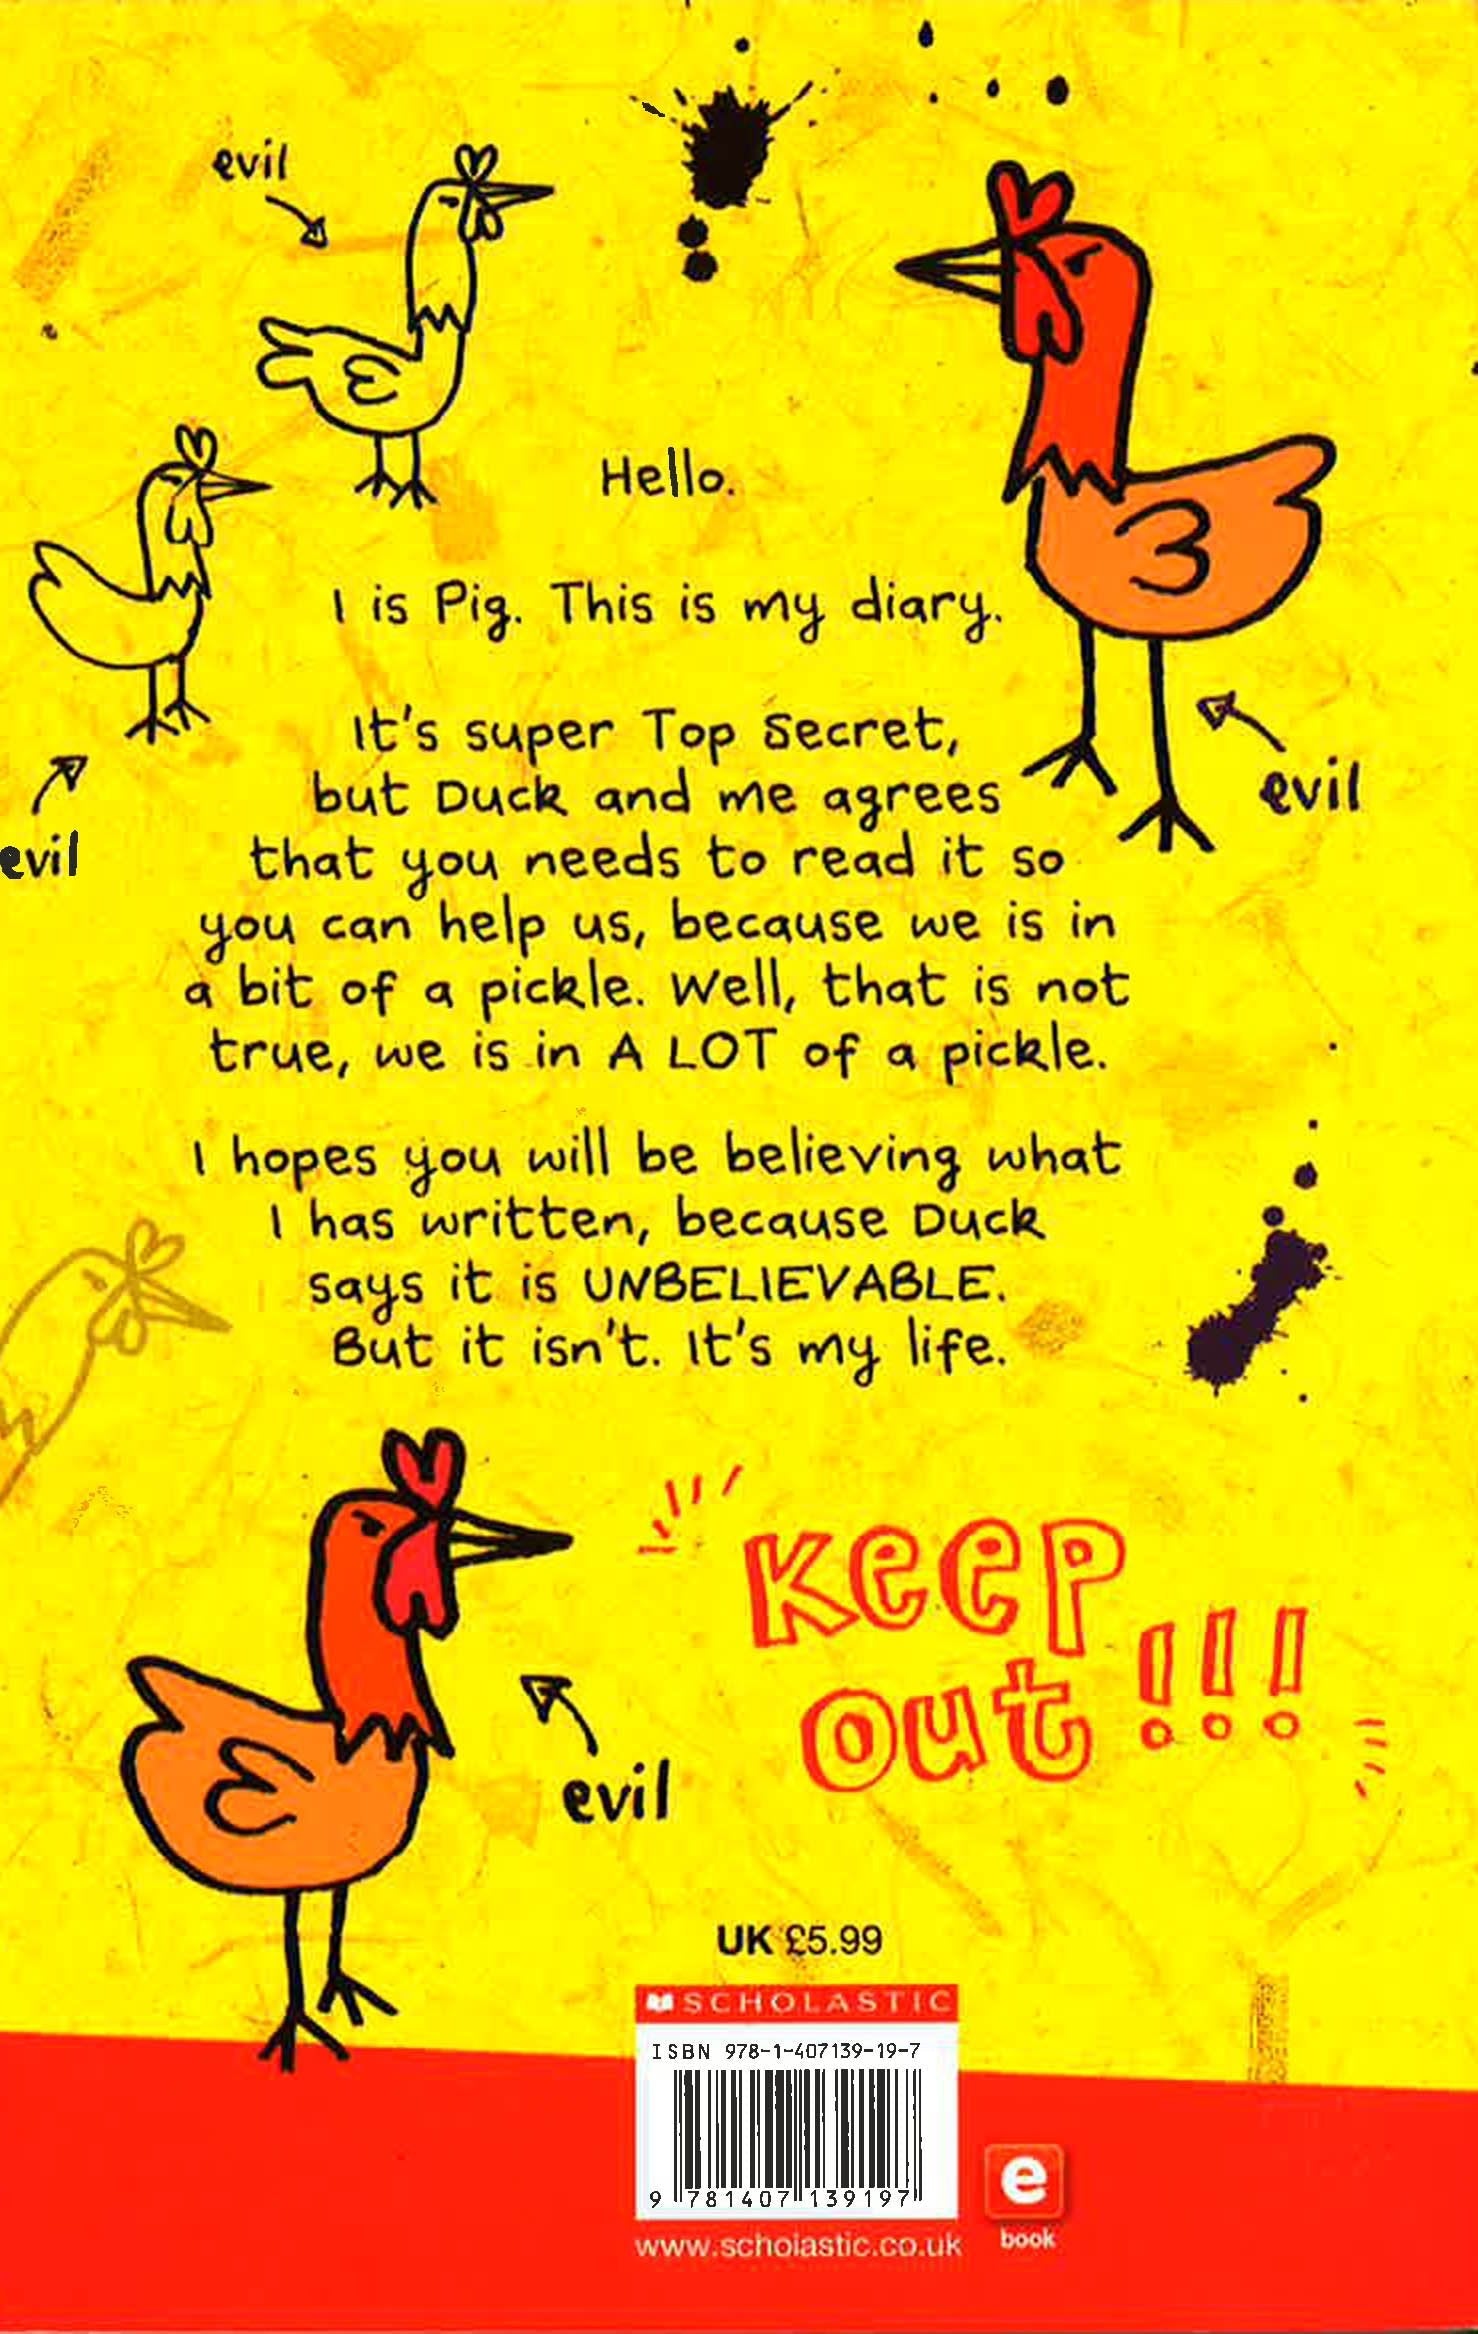 evil
evil
evil
Hello.
I is Pig. This is my diary.
It's super Top Secret,
but Duck and me agrees
that you needs to read it so
you can help us, because we is in
a bit of a pickle. Well, that is not
true, we is in A LOT of a pickle.
I hopes you will be believing what
I has written, because Duck
says it is UNBELIEVABLE.
But it isn't. It's my life.
evil
Keep
Out!!!
UK £5.99
SCHOLASTIC
ISBN 978-1-407139-19-7
9 781407 139197
www.scholastic.co.uk
e
book